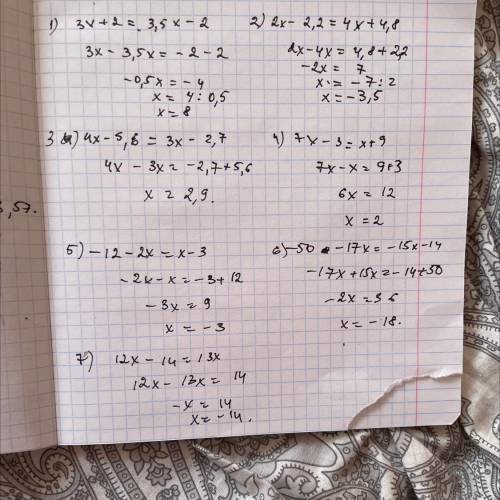 1) 3x + 2 = 3,5x - 2
3x - 3,5x = -2 - 2
-0,5x = -4
x = 4 : 0,5
x = 8
2) 2x - 2,2 = 4x + 4,8
2x - 4x = 4,8 + 2,2
-2x = 7
x = -7 : 2
x = -3,5
3) 4x - 5,6 = 3x - 2,7
4x - 3x = -2,7 + 5,6
x = 2,9.
4) 7x - 3 = x + 9
7x - x = 9 + 3
6x = 12
x = 2
5) -12 - 2x = x - 3
-2x - x = -3 + 12
-3x = 9
x = -3
6) -50 - 17x = -15x - 14
-17x + 15x = -14 + 50
-2x = 36
x = -18.
7) 12x - 14 = 13x
12x - 13x = 14
-x = 14
x = -14.
,57.